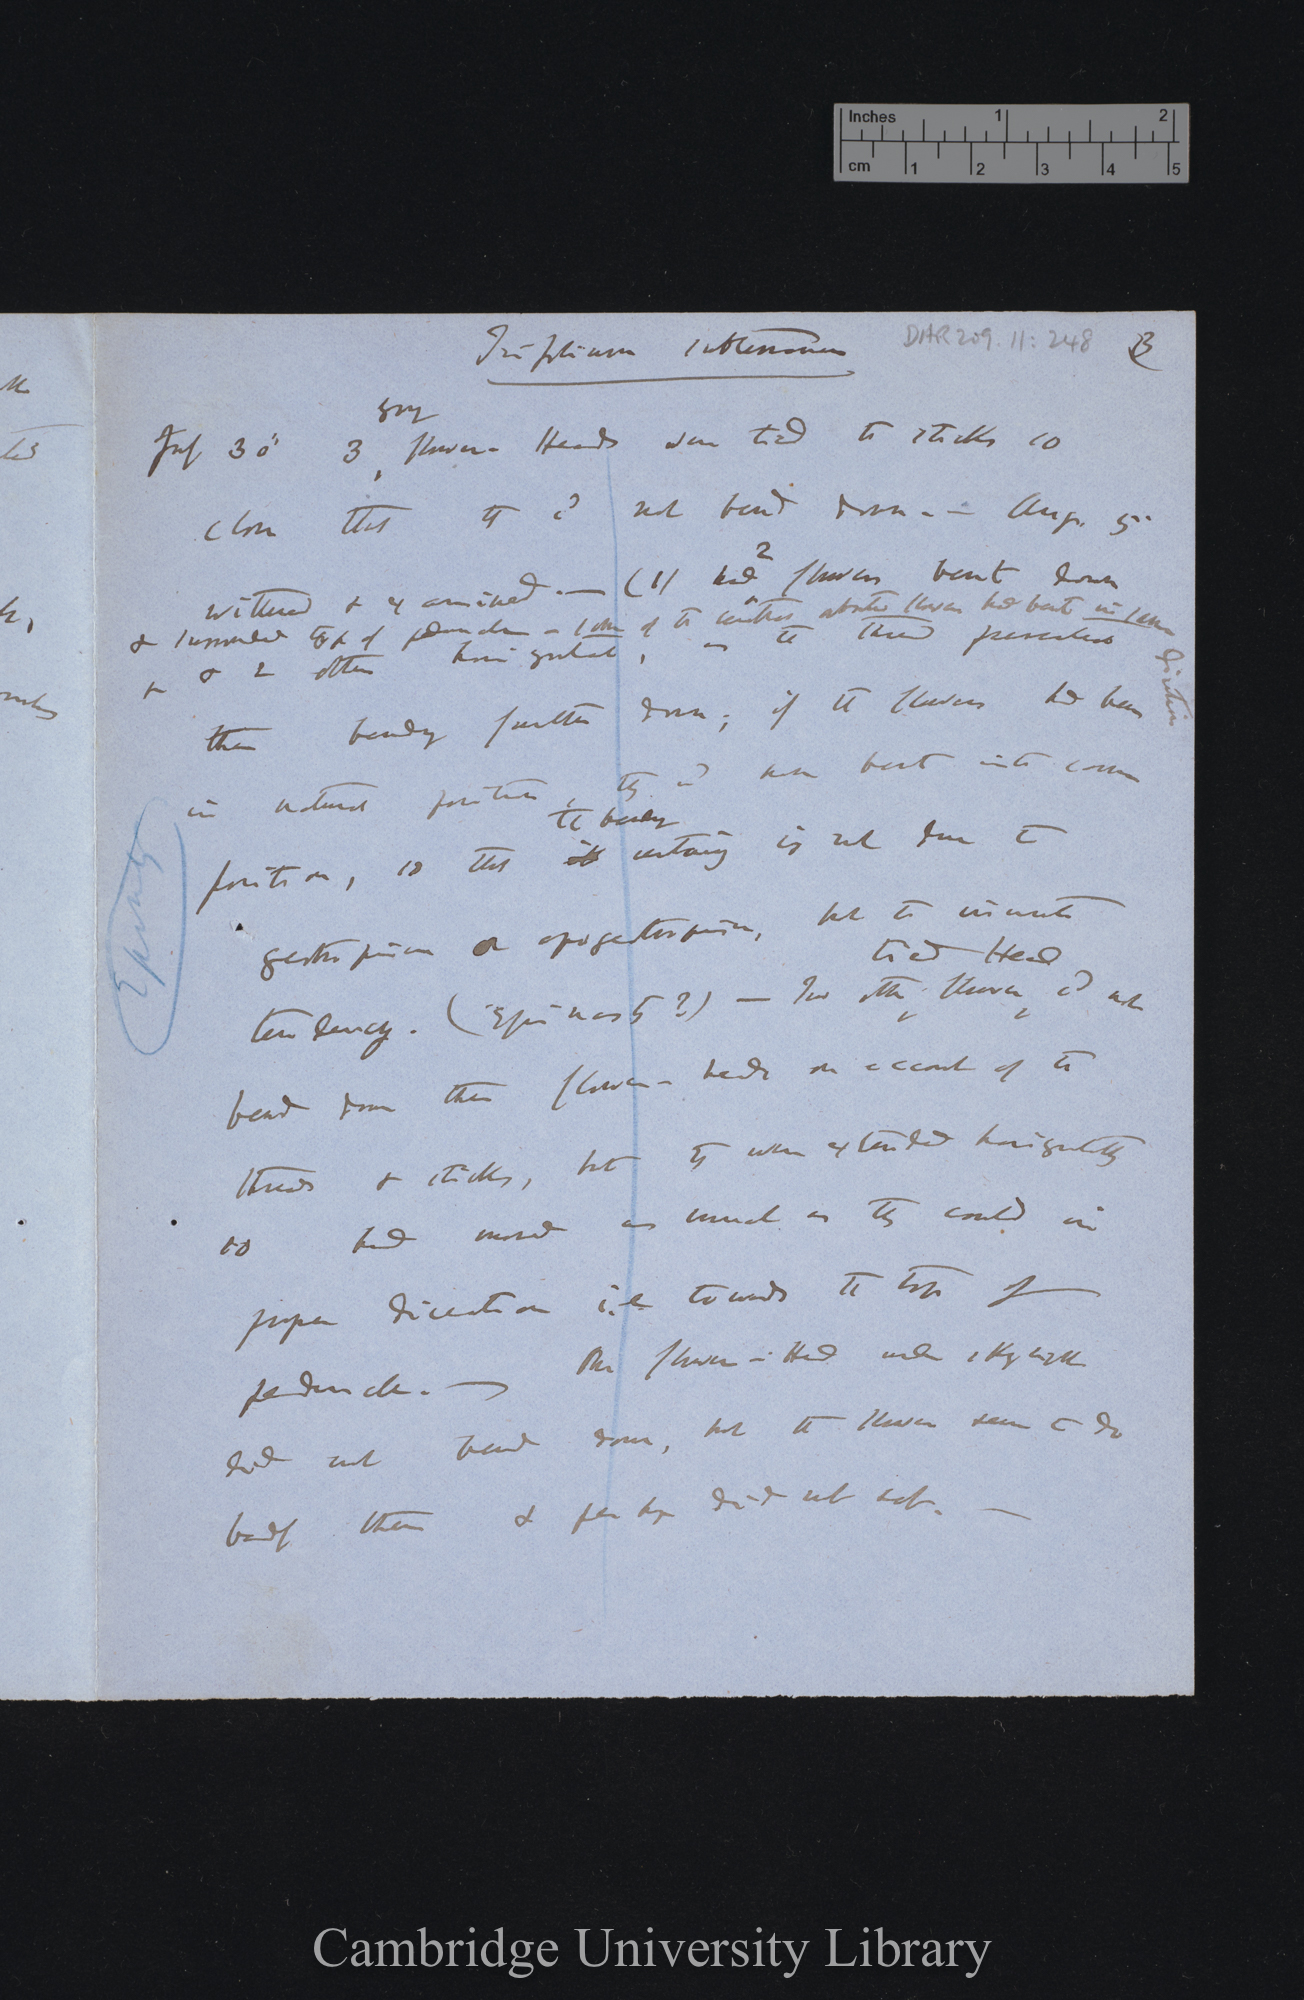 Inches 1 2
cm 1 2 3 4 5
Trifolium subterraneum DAR 209.11: 248 B
young
July 30th 3 flower-Heads were tied to sticks so
close that they cd not bend down — Aug. 5th
withered & examined. — (1) had 2 flowers bent down
& surrounded top of peduncle — some of the central abortive flowers had bent in same direction
& 2 others horizontal, as the thread prevented
them bending further down; if the flowers had been
in natural position, they cd have bent into same
the bending
position, so that certainly is not due to
geotropism or apogeotropism, but to innate
tied Head
tendency. (Epinasty?) — Two other flower cd not
bend down their flower-heads on account of the
threads & sticks, but they were extended horizontally
so had moved as much as they could in
proper direction i.e. towards the top of
peduncle. — One flower-Head under skylight
did not bend down, but the flowers seem to do
badly there & perhaps did not set. —
Epinasty
Cambridge University Library